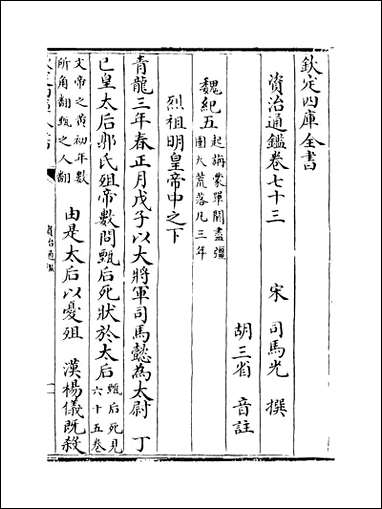 欽定四庫全書
資治通鑑卷七十三 宋 司馬光 撰
胡三省 音註
魏紀五 起旃蒙單閼盡彊
圉大荒落凡三年
烈祖明皇帝中之下
青龍三年春正月戊子以大將軍司馬懿為太尉 丁
巳皇太后郭氏殂帝數問甄后死狀於太后 甄后死見
六十五卷
文帝之黄初年數
所角翻甄之人翻
由是太后以憂殂 漢楊儀既殺